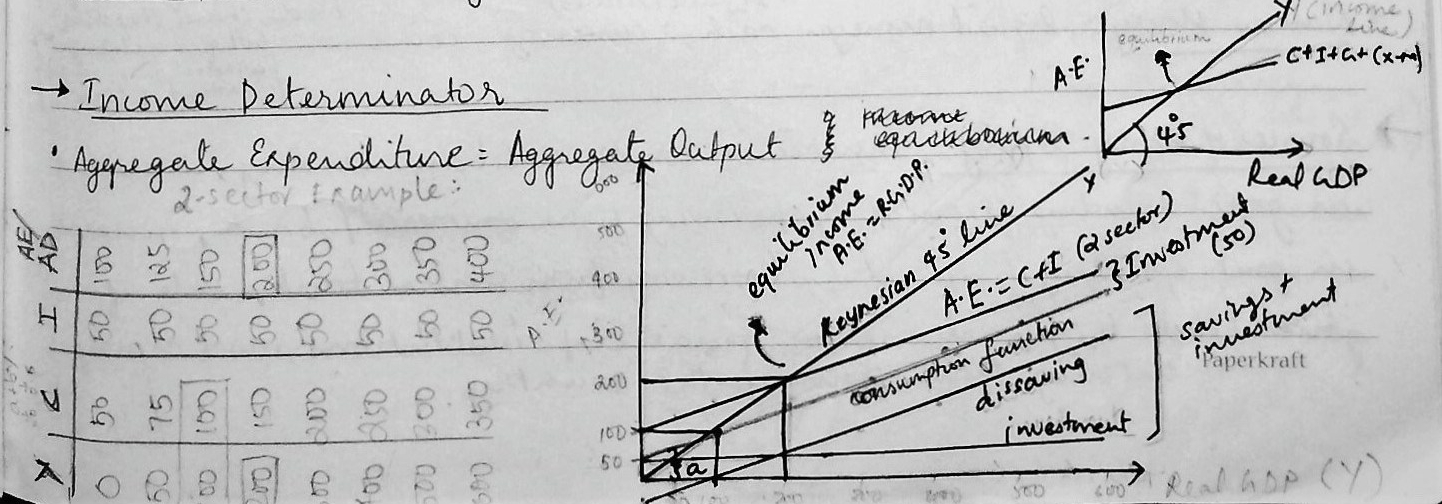 → Income Determinator
• Aggregate Expenditure = Aggregate Output
2-sector Example:
AE/AD 100 125 150 200 250 300 350 400
I 50 50 50 50 50 50 50 50
C 50 75 100 150 200 250 300 350
Y 0 50
equilibrium
A.E.
Y (income line)
C+I+G+(x-m)
45°
Real GDP
500
400
300
200
100
50
equilibrium
income
A.E. = R.G.D.P.
Keynesian 45° line
A.E. = C+I (2 sector)
} Investment
(50)
consumption function
dissaving
investment
savings +
investment
Paperkraft
a
500 600
Real GDP (Y)